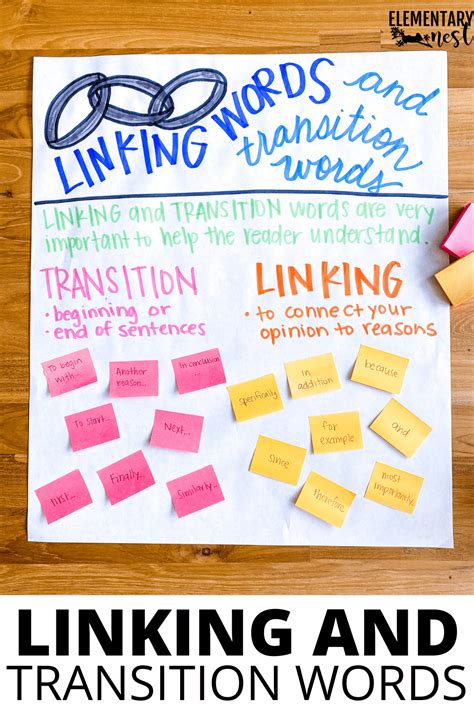 ELEMENTARY
nest
LINKING WORDS and
transition
words
LINKING and TRANSITION words are very
important to help the reader understand.
TRANSITION
• beginning or
• end of sentences
LINKING
• to connect your
opinion to reasons
To begin
with...
Another
reason...
In conclusion
To start...
Next...
First...
Finally...
Similarly...
specifically
in
addition
because
for
example
and
since
therefore
most
importantly
LINKING AND
TRANSITION WORDS